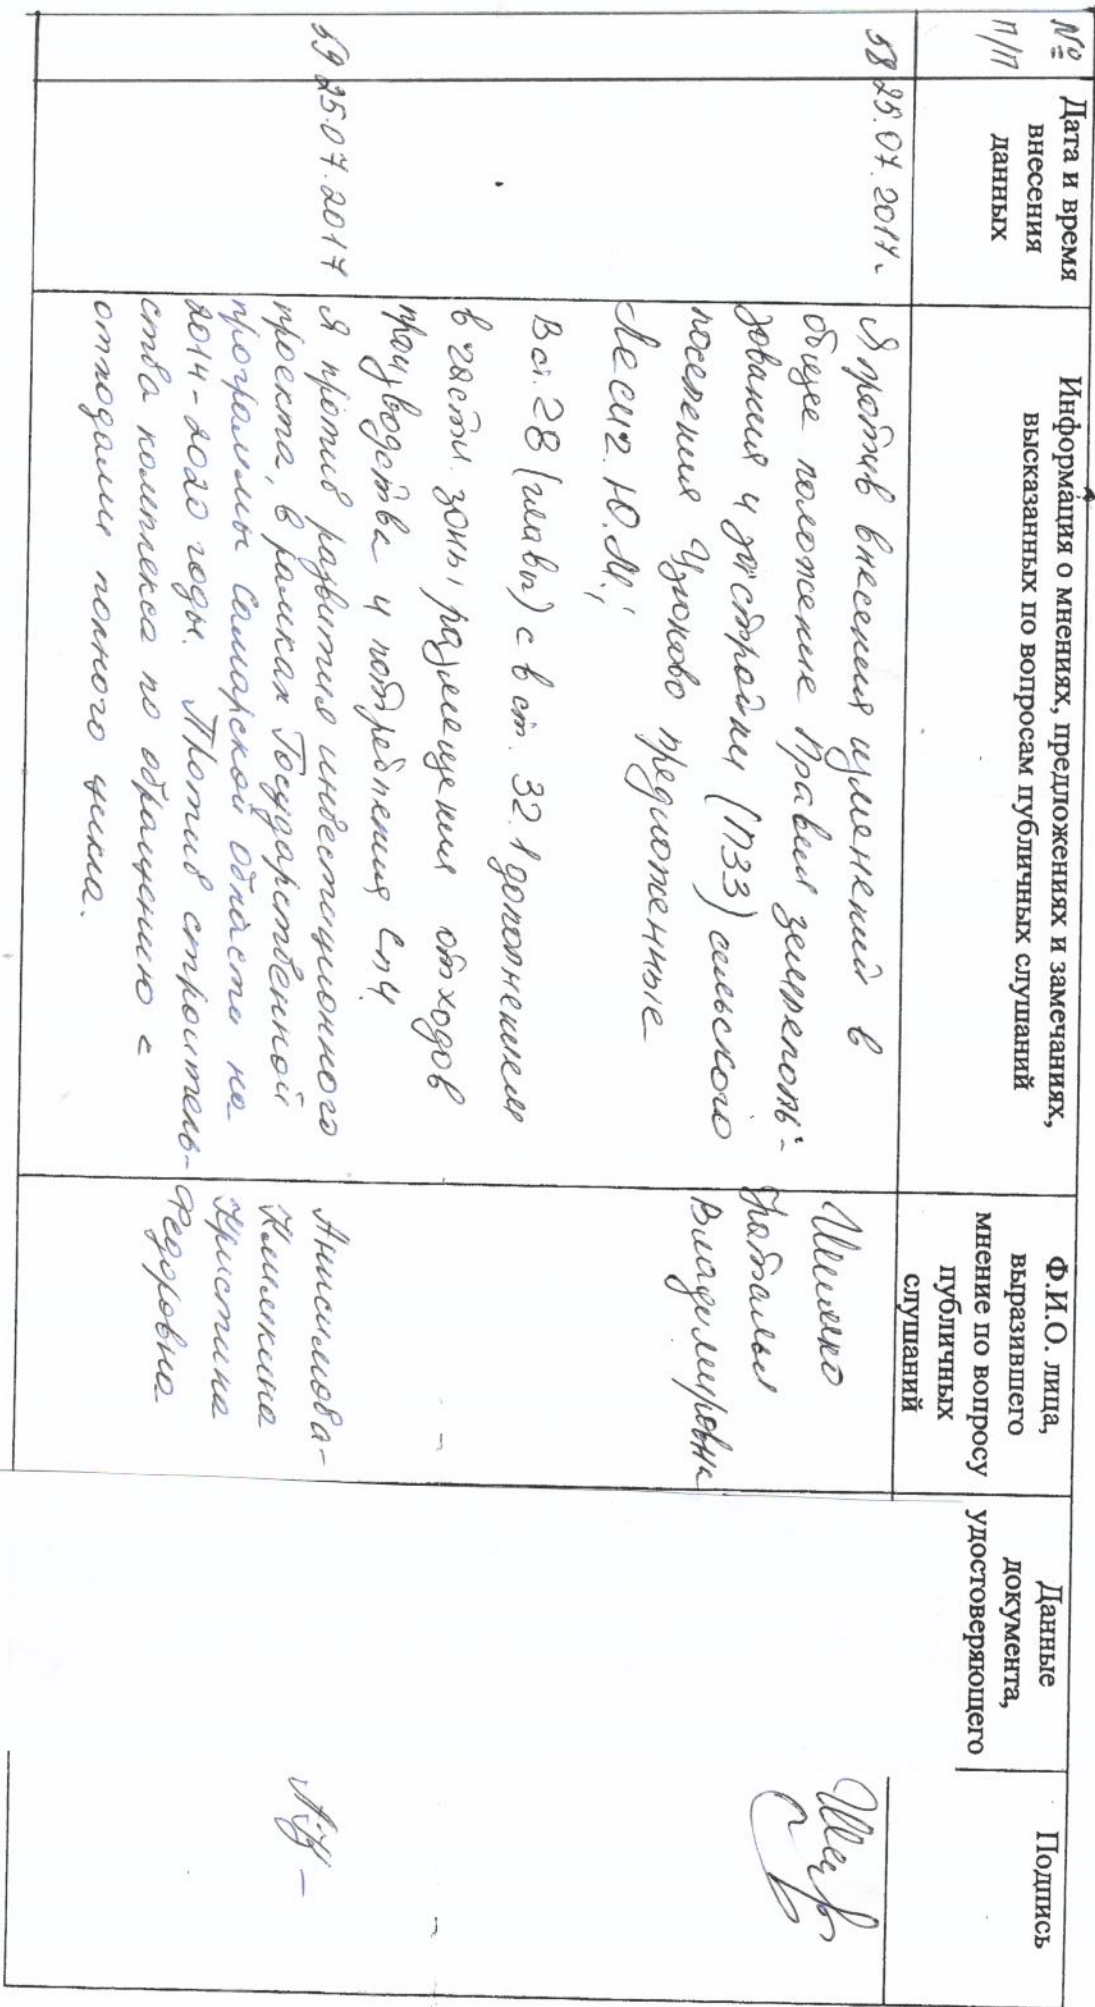 № п/п
Дата и время
внесения
данных
Информация о мнениях, предложениях и замечаниях,
высказанных по вопросам публичных слушаний
Ф.И.О. лица,
выразившего
мнение по вопросу
публичных
слушаний
Данные
документа,
удостоверяющего
Подпись
58
25.07.2017г.
Я против внесения изменений в
общее положение Правил землеполь-
зования и застройки (ПЗЗ) сельского
поселения Узюково предложенные
Ю.М.;
В ст. 28 (главы) с в ст. 32.1 дополнением
в части зоны размещения отходов
производства и потребления сп4.
Наталья
Владимировна
59
25.07.2017
Я против развития инвестиционного
проекта, в рамках Государственной
программы Самарской области на
2014-2020 годы. Против строитель-
ства комплекса по обращению с
отходами полного цикла.
Анисимова-
Климкина
Кристина
Федоровна